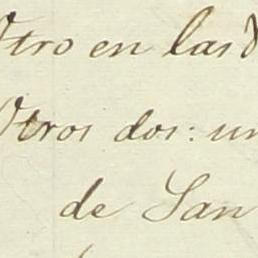 Otro en las
Otros dos: un
de San